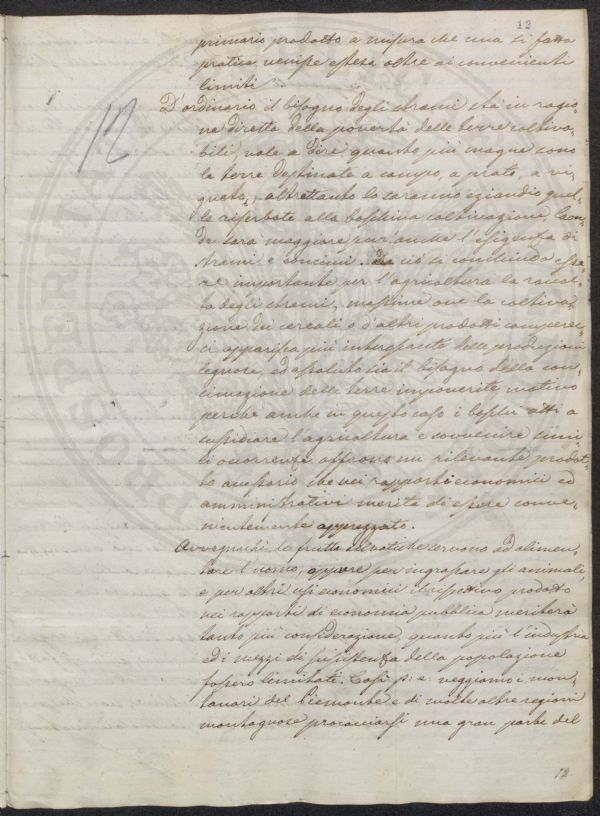 13
primario prodotto a misura che una sì fatta
pratica venisse estesa oltre ai convenienti
limiti.
12
D'ordinario il bisogno degli strami stà in ragio,
ne diretta della povertà delle terre coltiva,
bili, vale a dire quanto più magre sono
le terre destinate a campo, a prato, a vi,
gneto, altrettanto lo saranno eziandio quel,
le riserbate alla boschiva coltivazione, laon,
de sarà maggiore pur anche l'esigenza di
strami e concimi. Da ciò si conchiude esse,
re importante per l'agricoltura la raccol,
ta degli strami, massime ove la coltiva,
zione dei cereali o d'altri prodotti camperec,
ci apparisca più interessante delle produzioni
legnose, ed assoluto sia il bisogno della con,
cimazione delle terre impoverite, motivo
perchè anche in questo caso i boschi atti a
sussidiare l'agricoltura e sovvenire simi,
li occorrenze offrono un rilevante prodot,
to accessorio che nei rapporti economici ed
amministrativi merita di essere conve,
nientemente apprezzato.
Avvegnachè le frutta selvatiche servono ad alimen,
tare l'uomo, oppure per ingrassare gli animali,
e per altri usi economici il rispettivo prodotto
nei rapporti di economia pubblica meriterà
tanto più considerazione, quanto più l'industria
ed i mezzi di sussistenza della popolazione
fossero limitati. Così p: e: veggiamo i mon,
tanari del Piemonte e di molte altre regioni
montagnose procacciarsi una gran parte del
12
PROSPERITAT